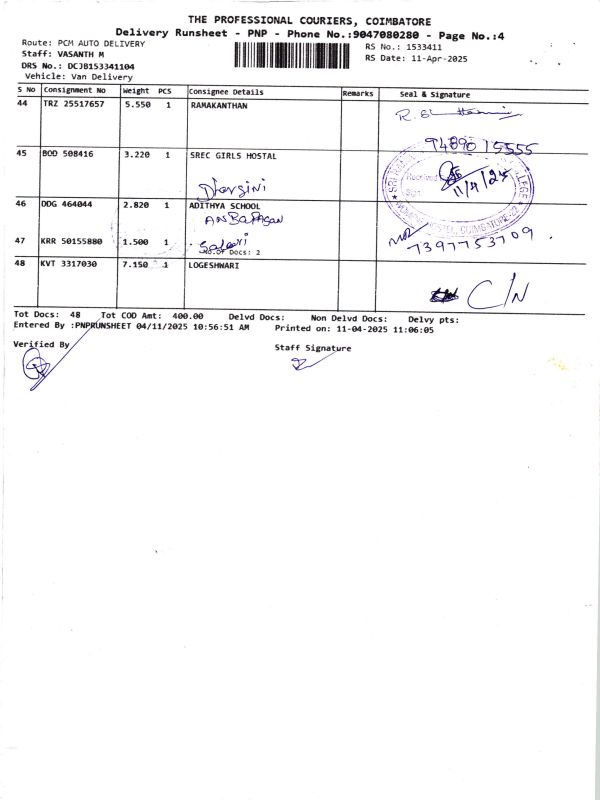 THE PROFESSIONAL COURIERS, COIMBATORE
Delivery Runsheet - PNP - Phone No.:9047080280 - Page No.:4
Route: PCM AUTO DELIVERY
RS No.: 1533411
Staff: VASANTH M
RS Date: 11-Apr-2025
DRS No.: DCJB153341104
Vehicle: Van Delivery
S No Consignment No Weight PCS Consignee Details Remarks Seal & Signature
44 TRZ 25517657 5.550 1 RAMAKANTHAN
9489015555
45 BOD 508416 3.220 1 SREC GIRLS HOSTAL
Received
11/4/25
Sign
46 DDG 464044 2.820 1 ADITHYA SCHOOL
7397753709.
47 KRR 50155880 1.500 1
No.Of Docs: 2
48 KVT 3317030 7.150 1 LOGESHWARI
C/N
Tot Docs: 48 Tot COD Amt: 400.00 Delvd Docs: Non Delvd Docs: Delvy pts:
Entered By :PNPRUNSHEET 04/11/2025 10:56:51 AM Printed on: 11-04-2025 11:06:05
Verified By
Staff Signature